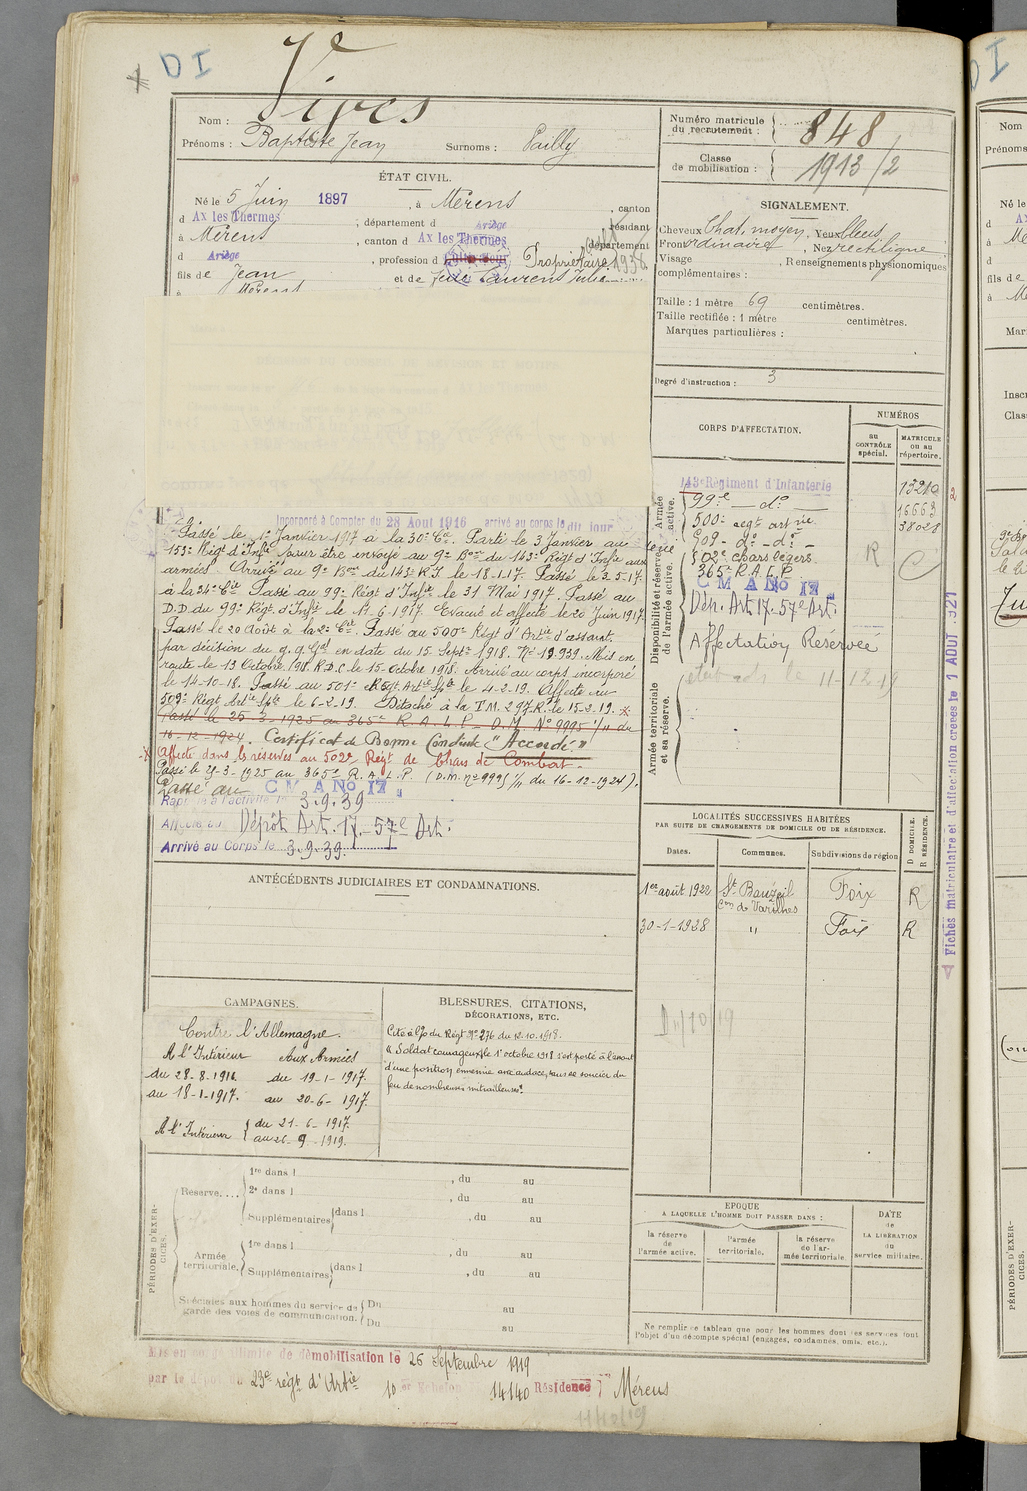 DI
Vives
Nom :
Prénoms : Baptiste Jean Surnoms : Pailly
Numéro matricule du recrutement : 848
Classe de mobilisation : 1913/2
ÉTAT CIVIL.
Né le 5 Juin 1897, à Mérens, canton
d Ax les Thermes ; département d Ariège résidant
à Mérens, canton d Ax les Thermes département
d Ariège, profession d Propriétaire 1938
fils de Jean et de feue Laurens Julie
à Mérens
SIGNALEMENT.
Cheveux Chat. moyen, Yeux bleus
Front ordinaire, Nez rectiligne
Visage Renseignements physionomiques
complémentaires :
Taille : 1 mètre 69 centimètres.
Taille rectifiée : 1 mètre centimètres.
Marques particulières :
Degré d'instruction : 3
CORPS D'AFFECTATION.
NUMÉROS
au CONTRÔLE spécial.
MATRICULE ou au répertoire.
Armée active.
143e Régiment d'Infanterie
99e — do —
500e regt artie
509 - do - do -
502e chars légers
365e R.A.L.P.
CMA No 17
Dép. Art. 17. 57e Art.
Affectation Réservée
Disponibilité et réserve de l'armée active.
Armée territoriale et sa réserve.
16663
38028
R
Incorporé à Compter du 28 Août 1916 arrivé au corps le dit jour
Passé le 1er Janvier 1917 à la 30e Cie. Parti le 3 Janvier au
153e Régt d'Infie pour être envoyé au 9e Bon du 143e Régt d'Infie aux
armées. Arrivé au 9e Bon du 143e R.I. le 18-1-17. Passé le 3.5.17.
à la 24e Cie Passé au 99e Régt d'Infie le 31 Mai 1917. Passé au
D.D. du 99e Régt. d'Infie le 11-6-1917. Evacué et affecté le 20 Juin 1917
Passé le 20 Août à la 2e Cie. Passé au 500e Régt d'Artie d'assaut.
par décision du g.q.Gal en date du 15 Sept. 1918. No 19.939. Mis en
route le 13 Octobre 1918. R.D.C. le 15 Octobre 1918. Arrivé au corps incorporé
le 14-10-18. Passé au 501e Régt. Artie Sple le 4-2-19. Affecté au
509e Régt Artie Sple le 6-2-19. Détaché à la T.M. 297 R. le 15-2-19.
Passé le 25-3-1925 au 365e R.A.L.P. D.M. No 9995 1/11 du
16-12-1924. Certificat de Bonne Conduite "Accordé"
Affecté dans les réserves au 502e Régt de Chars de Combat.
Passé le 25-3-1925 au 365e R.A.L.P. (D.M. no 9995 1/11 du 16-12-1924).
Passé au CMA No 17
Rappelé à l'activité le 3.9.39
Affecté au Dépôt Art. 17 - 57e Art.
Arrivé au Corps le 3.9.39.
ANTÉCÉDENTS JUDICIAIRES ET CONDAMNATIONS.
LOCALITÉS SUCCESSIVES HABITÉES
PAR SUITE DE CHANGEMENTS DE DOMICILE OU DE RÉSIDENCE.
Dates. Communes. Subdivisions de région
D DOMICILE. R RÉSIDENCE.
1er août 1922 St Bauzeil Con de Varilhes Foix R
30-1-1928 " Foix R
Fiches matriculaire et d'affectation créées le 1 AOUT 1927
CAMPAGNES.
Contre l'Allemagne.
A l'Intérieur Aux Armées
du 28-8-1916. du 19-1-1917.
au 18-1-1917. au 20-6-1917.
A l'Intérieur du 21-6-1917. au 26-9-1919.
BLESSURES, CITATIONS, DÉCORATIONS, ETC.
Cité à l'o du Régt No 276 du 12.10.1918.
"Soldat courageux, le 1er octobre 1918 s'est porté à l'assaut
d'une position ennemie avec audace, sans se soucier du
feu de nombreuses mitrailleuses".
PÉRIODES D'EXERCICES.
Réserve.... 1re dans l , du au
2e dans l , du au
Supplémentaires dans l , du au
Armée territoriale. 1re dans l , du au
Supplémentaires dans l , du au
Spéciales aux hommes du service de garde des voies de communication. Du au
Du au
EPOQUE
A LAQUELLE L'HOMME DOIT PASSER DANS :
la réserve de l'armée active.
l'armée territoriale.
la réserve de l'armée territoriale
DATE de LA LIBÉRATION du service militaire.
Ne remplir ce tableau que pour les hommes dont les services font
l'objet d'un décompte spécial (engagés, condamnés, omis, etc.).
Mis en congé illimité de démobilisation le 26 Septembre 1919
par le dépôt du 23e régt d'Artie 10er Echelon 14140 Résidence Mérens